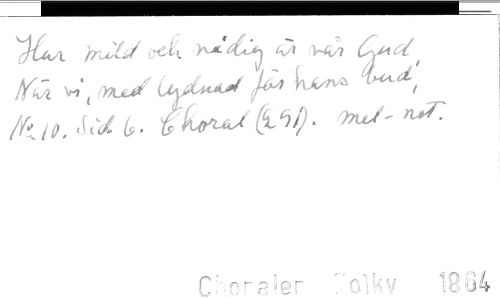 Hur mild och nådig är vår Gud
När vi, med lydnad för hans bud,
No 10. Sid. 6. Choral (291). mel-not.
Choraler Tolkv 1864